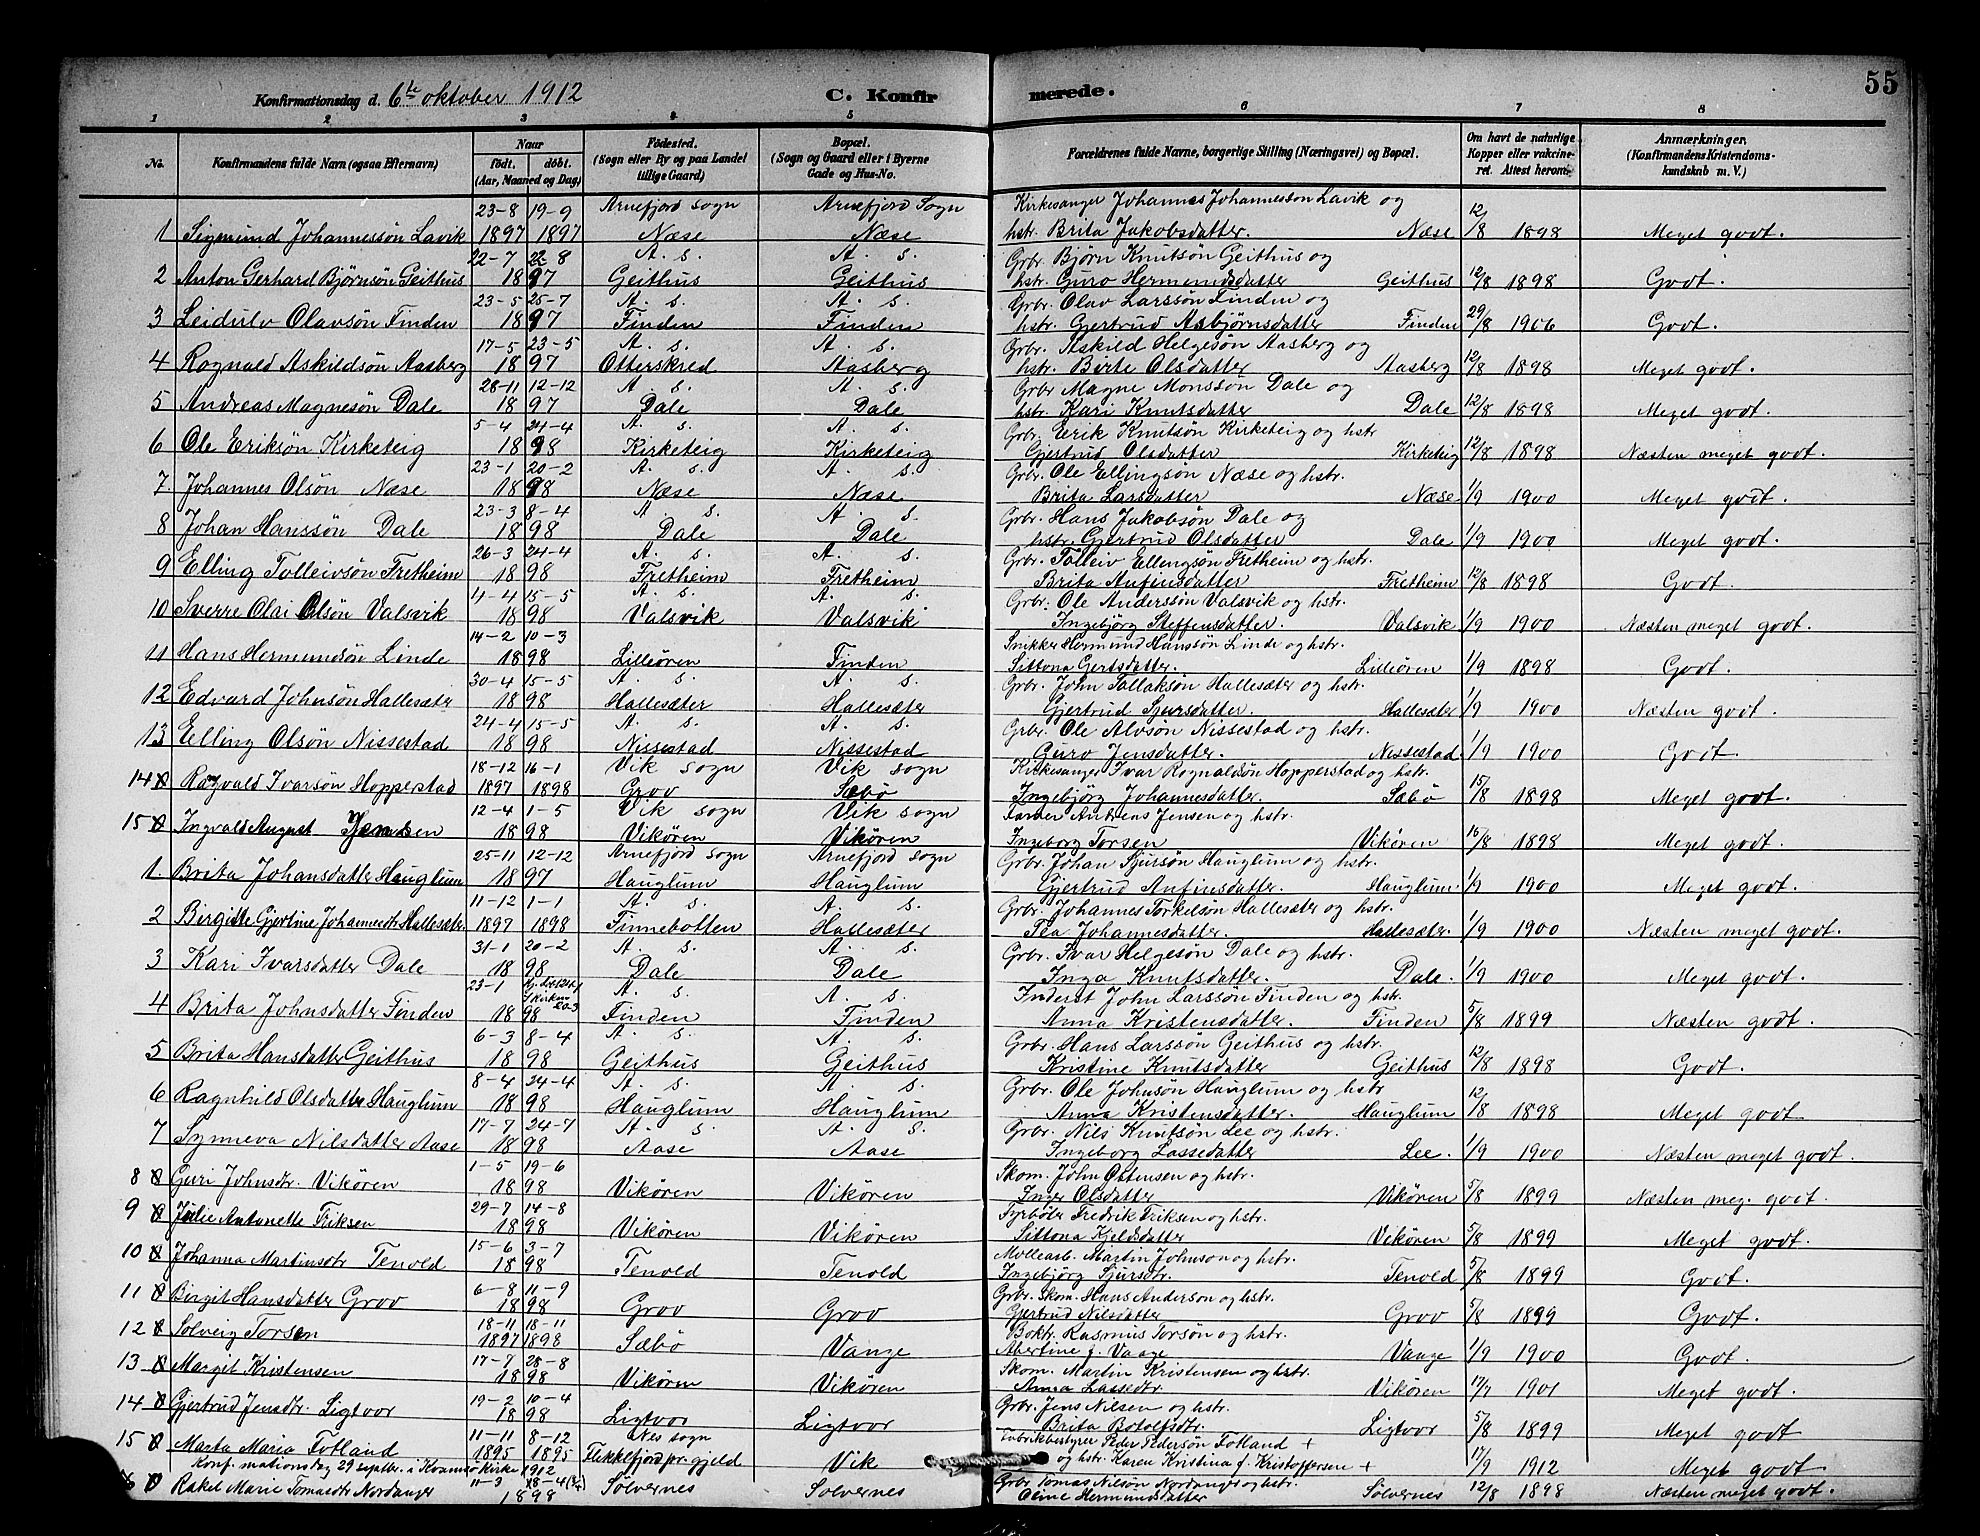 55
Konfirmationsdag d. 6te oktober 1912
C. Konfirmerede.
1 2 3 4 5 6 7 8
No. Konfirmandens fulde Navn (ogsaa Efternavn) Naar födt. döbt. (Aar, Maaned og Dag) Födested. (Sogn eller By og paa Landet tillige Gaard) Bopæl. (Sogn og Gaard eller i Byerne Gade og Hus-No. Forældrenes fulde Navne, borgerlige Stilling (Næringsvei) og Bopæl. Om havt de naturlige Kopper eller vakcineret. Attest herom. Anmærkninger. (Konfirmandens Kristendomskundskab m. V.)
23-8 19-9 Arnefjord sogn Arnefjord Sogn Kirkesanger Johannes Johannessön Lavik og
1 Sigmund Johannessön Lavik 1897 1897 Næse Næse hstr. Brita Jakobsdatter. Næse 12/8 1898 Meget godt.
22-7 22-8 A. s. A. s. Grbr. Björn Knutsön Geithus og
2 Anton Gerhard Björnsön Geithus 1897 Geithus Geithus hstr. Guro Hermundsdatter Geithus 12/8 1898 Godt.
23-5 25-7 A. s. A. s. Grbr. Olav Larssön Finden og
3 Leidulv Olavsön Finden 1897 Finden Finden hstr. Gjertrud Asbjörnsdatter Finden 29/8 1906 Godt.
17-5 23-5 A. s. A. s. Grbr. Askild Helgesön Aasberg og
4 Rognald Askildsön Aasberg 1897 Otterskred Aasberg hstr. Birte Olsdatter Aasberg 12/8 1898 Meget godt.
28-11 12-12 A. s. A. s. Grbr Magne Monssön Dale og
5 Andreas Magnesön Dale 1897 Dale Dale hstr. Kari Knutsdatter Dale 12/8 1898 Meget godt.
5-4 24-4 A. s. A. s. Grbr. Eerik Knutsön Kirketeig og hstr
6 Ole Eriksön Kirketeig 1898 Kirketeig Kirketeig Gjertrud Olsdatter Kirketeig 12/8 1898 Næsten meget godt.
23-1 20-2 A. s. A. s. Grbr. Ole Ellingsön Næse og hstr.
7. Johannes Olsön Næse 1898 Næse Næse Brita Larsdatter Næse 1/9 1900 Meget godt.
23-3 8-4 A. s. A. s. Grbr. Hans Jakobsön Dale og
8 Johan Hanssön Dale 1898 Dale Dale hstr. Gjertrud Olsdatter Dale 1/9 1900 Meget godt.
26-3 24-4 A. s. A. s. Grbr. Tolleiv Ellingsön Fretheim og hstr.
9 Elling Tolleivsön Fretheim 1898 Fretheim Fretheim Brita Anfinsdatter Fretheim 12/8 1898 Godt.
4-4 15-5 A. s. A. s. Grbr. Ole Anderssön Valsvik og hstr.
10 Sverre Olai Olsön Valsvik 1898 Valsvik Valsvik Ingebjörg Steffensdatter. Valsvik 1/9 1900 Næsten meget godt.
14-2 10-3 Snikker Hermund Hanssön Linde og hstr.
11 Hans Hermundsön Linde 1898 Lilleören Finden Sittona Gertsdatter. Lilleören 1/9 1898 Godt.
30-4 15-5 A. s. A. s. Grbr. John Tallaksön Hallesæter og hstr.
12 Edvard Johnsön Hallesæter 1898 Hallesæter Hallesæter Gjertrud Sjursdatter. Hallesæter 1/9 1900 Næsten godt.
24-4 15-5 A. s. A. s. Grbr. Ole Alvsön Nissestad og hstr.
13 Elling Olsön Nissestad 1898 Nissestad Nissestad Guro Jensdatter. Nissestad. 1/9 1900 Godt.
18-12 16-1 Vik sogn Vik sogn Kirkesanger Ivar Rognaldsön Hopperstad og hstr.
14 Ragvald Ivarsön Hopperstad 1897 1898 Grov Sæbö Ingebjörg Johannesdatter. Sæbö 15/8 1898 Meget godt.
12-4 1-5 Vik sogn Vik sogn Farver Andreas Jensen og hstr.
15 Ingvald August Jensen 1898 Vikören Vikören Ingeborg Torsen Vikören 16/8 1898 Meget godt.
25-11 12-12 Arnefjord sogn Arnefjord sogn Grbr. Johan Sjursön Hauglum og hstr.
1. Brita Johansdatter Hauglum 1897 Hauglum Hauglum Gjertrud Anfinsdatter. Hauglum 1/9 1900 Meget godt.
11-12 1-1 A. s. A. s. Grbr. Johannes Torkelsön Hallesæter og hstr.
2 Birgitte Gjertine Johannesdtr Hallesæter. 1897 1898 Finnebotten Hallesæter Pea Johannesdatter. Hallesæter. 1/9 1900 Næsten meget godt.
31-1 20-2 A. s. A. s. Grbr. Ivar Helgesön Dale og hstr.
3 Kari Ivarsdatter Dale 1898 Dale Dale Inga Knutsdatter. Dale. 1/9 1900 Meget godt.
23-1 Hj. döbt 24-1 I kirken 20-3 A. s. A. s. Inderst John Larssön Finden og hstr.
4 Brita Johnsdatter Finden 1898 Finden Finden Anna Kristensdatter. Finden 5/8 1899 Næsten godt.
6-3 8-4 A. s. A. s. Grbr. Hans Larssön Geithus og hstr.
5 Brita Hansdatter Geithus 1898 Geithus Geithus Kristine Knutsdatter Geithus 12/8 1898 Godt.
8-4 24-4 A. s. A. s. Grbr. Ole Johnsön Hauglum og hstr
6 Ragnhild Olsdatter Hauglum 1898 Hauglum Hauglum Anna Kristensdatter. Hauglum 12/8 1898 Meget godt
17-7 24-7 A. s. A. s. Grbr. Nils Knutsön Lee og hstr.
7 Synneva Nilsdatter Aase 1898 Aase Aase Ingeborg Lassedatter Lee. 1/9 1900 Næsten meget godt.
1-5 19-6 Skom. John Ostensen og hstr.
8 Guri Johnsdtr. Vikören 1898 Vikören Vikören Inger Olsdatter Vikören 5/8 1899 Næsten meg. godt.
29-7 14-8 Gyrböler Fredrik Eriksen og hstr.
9 Julie Antonette Eriksen 1898 Vikören Vikören Sittona Kjeldsdatter Vikören 5/8 1899 Meget godt.
15-6 3-7 Möllearb. Martin Johnson og hstr.
10 Johanna Martinsdtr Tenold 1898 Tenold Tenold Ingebjörg Sjursdtr. Tenold 5/8 1899 Godt.
6-8 11-9 Grbr. Skom. Hans Anderson og hstr.
11 Birgit Hansdatter Grov 1898 Grov Grov Gjertrud Nilsdatter Grov 5/8 1899 Godt.
18-11 18-11 Boktr. Rasmus Torsön og hstr.
12 Solveig Torsen 1897 1898 Sæbö Vange Abertine f. Vange Vange 1/9 1900 Godt.
17-7 28-8 Skom. Martin Kristensen og hstr.
13 Margit Kristensen 1898 Vikören Vikören Anna Lassedtr. Vikören 17/7 1901 Meget godt.
19-2 10-4 Grbr. Jens Nilsen og hstr.
14 Gjertrud Jensdtr. Ligtvor 1898 Ligtvor Ligtvor Brita Botolfsdtr. Ligtvor 5/8 1899 Meget godt
11-11 8-12 Nes sogn Fabrikbestyrer Peder Pedersön Fotland +
15 Marta Maria Fotland 1895 1895 Flekkefjord pr.gjeld Vik og hstr. Karen Kristina f. Kristoffersen + 17/9 1912 Meget godt
Konfirmationsdag 29 septbr. i Kvamsö Kirke 1912
11-3 18-4 Grbr. Tomas Nilsön Nordanger og hstr.
Rakel Marie Tomasdtr Nordanger 1898 Solvernes Solvernes Oline Hermundsdatter Solvernes 12/8 1898 Næsten meget godt.